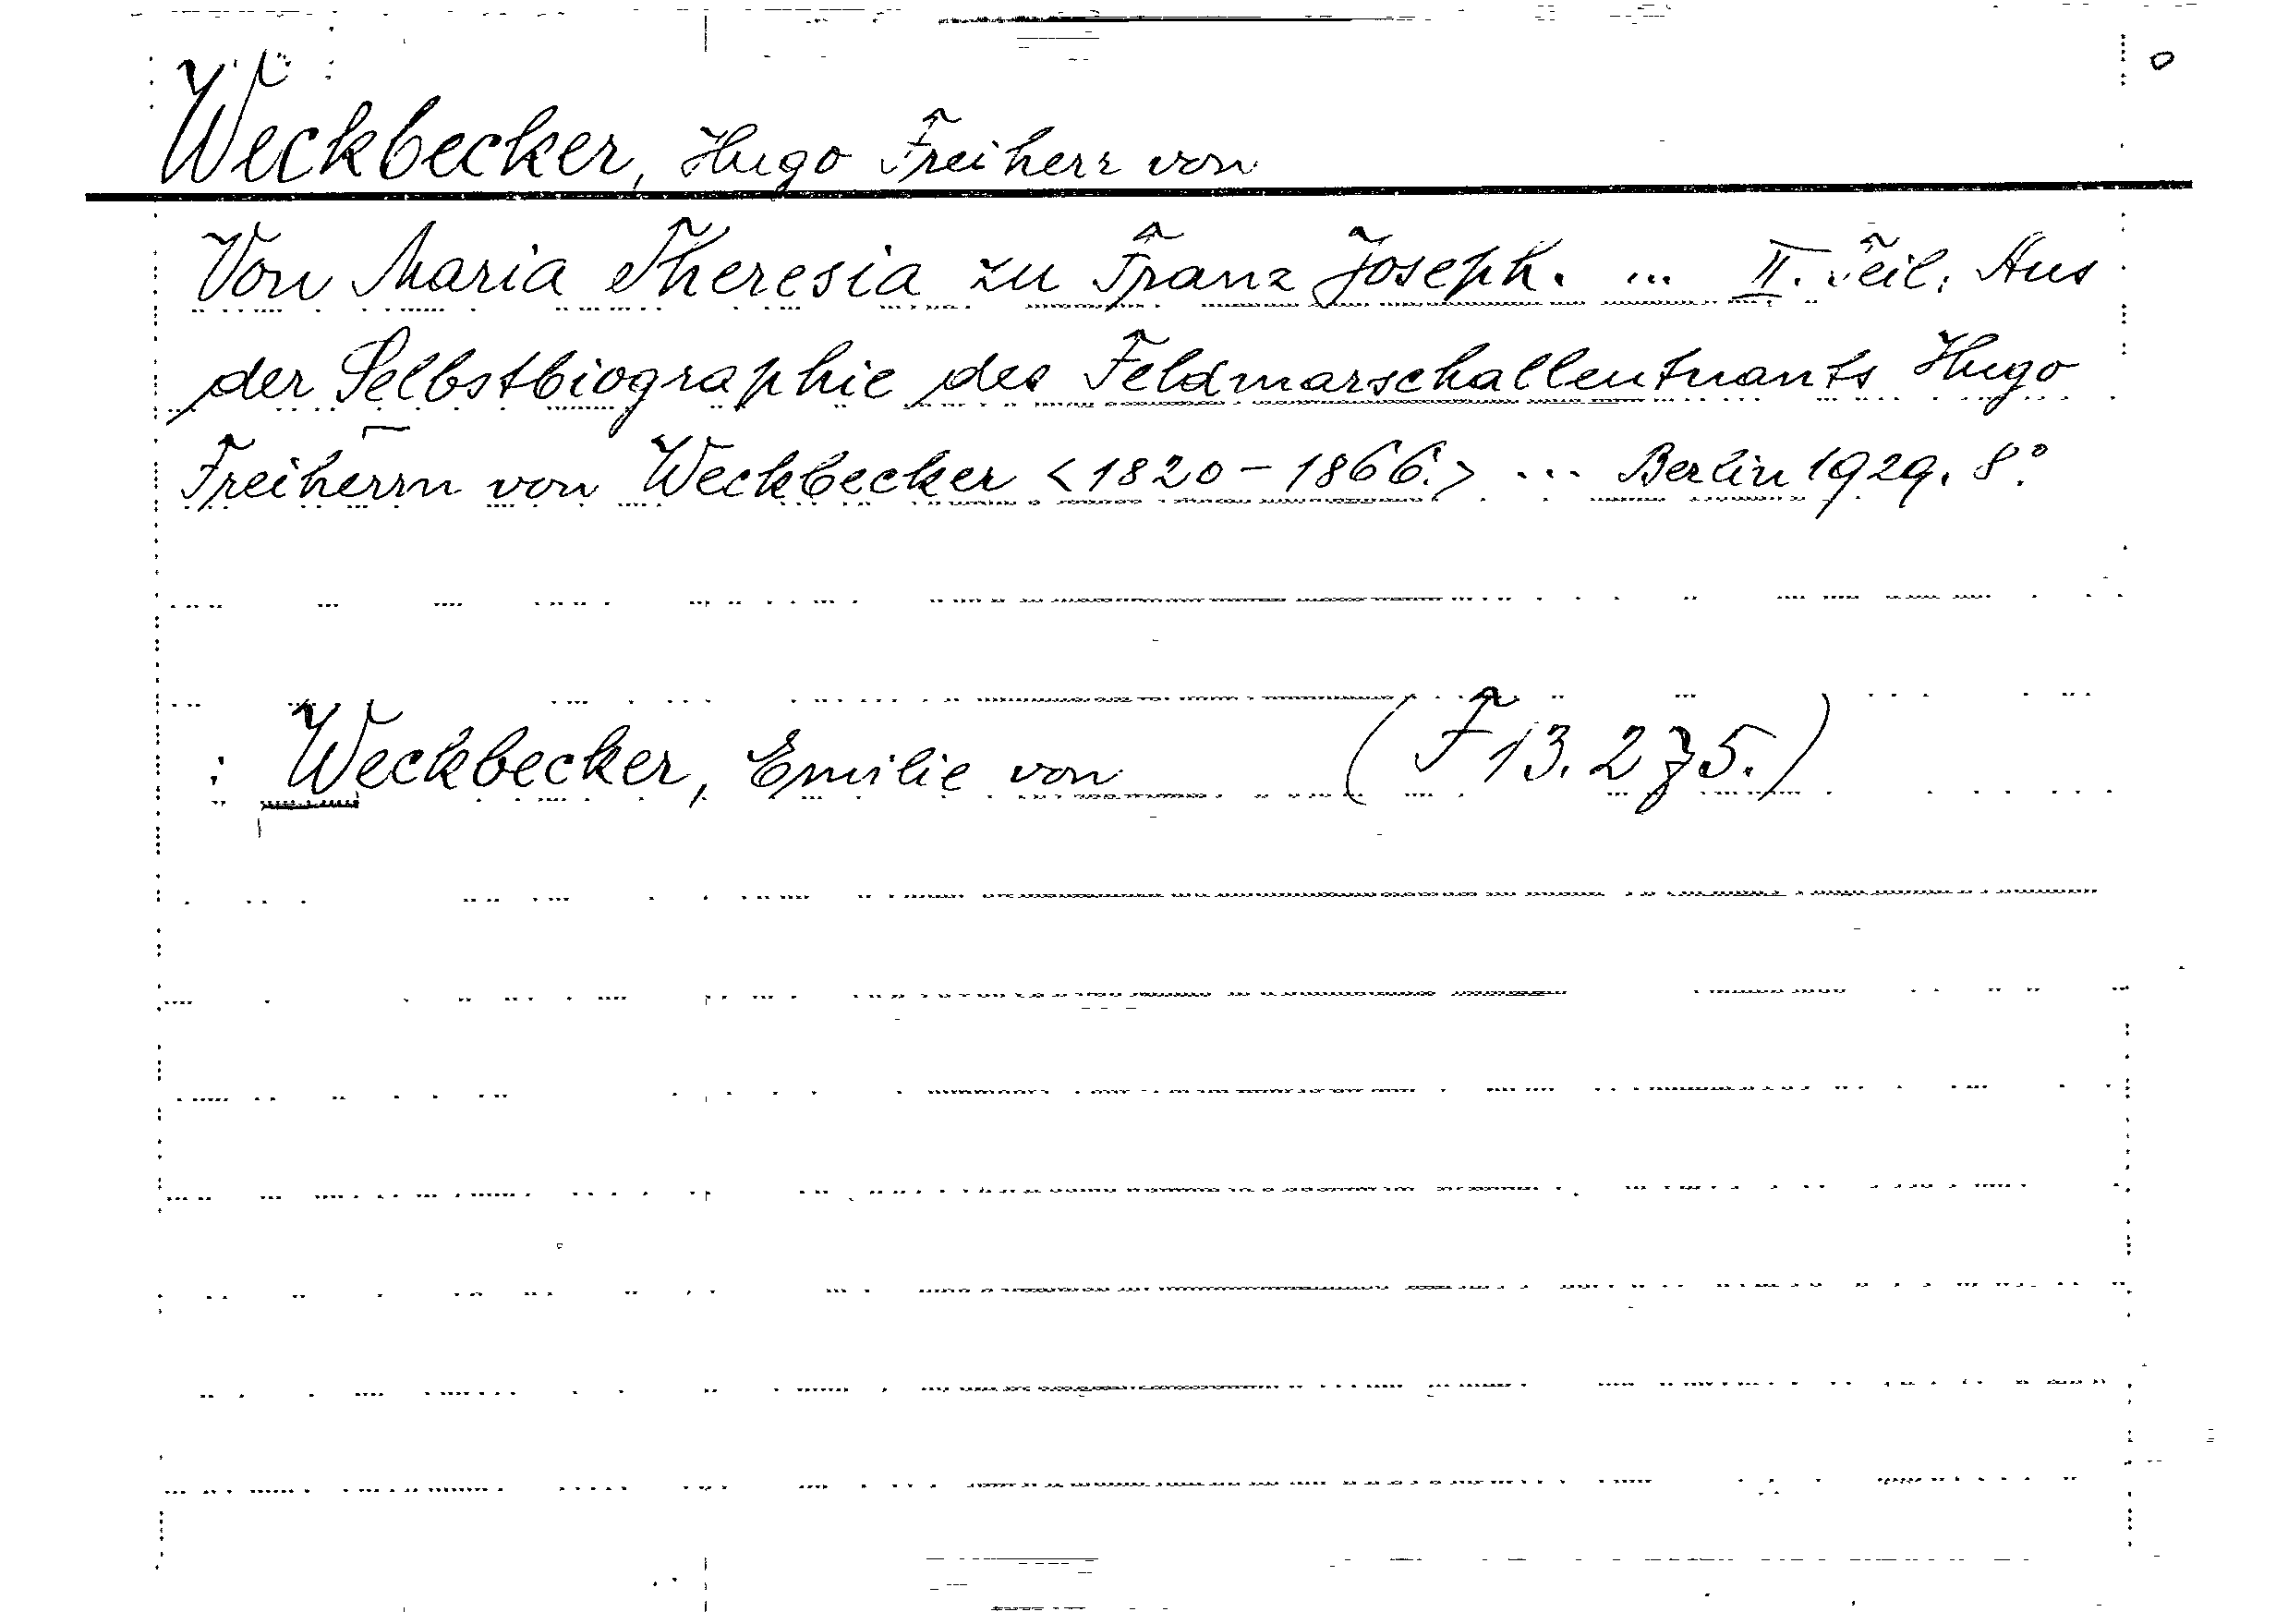 Weckbecker, Hugo Freiherr von
Von Maria Theresia zu Franz Joseph. ... II. Teil. Aus
der Selbstbiographie des Feldmarschalleutnants Hugo
Freiherrn von Weckbecker <1820-1866.> ... Berlin 1929. 8°.
: Weckbecker, Emilie von (F 13.275.)